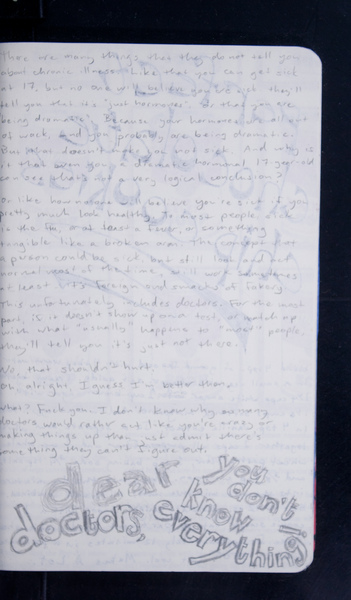 There are many things that they do not tell you
about chronic illness. Like that you can get sick
at 17, but no one will believe you're sick. They'll
tell you that it's "just hormones". Or that you are
being dramatic. Because your hormones are all out
of wack, and you probably are being dramatic.
But that doesn't you're not sick. And why is
it that even you, a dramatic hormonal 17-year-old
can see that's not a very logical conclusion?
Or like how no one will believe you're sick if you
pretty much look healthy. To most people, sick
is the flu, or at least a fever, or something
tangible like a broken arm. The concept that
a person could be sick, but still look and act
normal most of the time, or still work sometimes,
at least is foreign and smacks of fakery.
This unfortunately includes doctors. For the most
part, if it doesn't show up on a test, or match up
with what "usually" happens to "most" people,
they'll tell you it's just not there.
No, that shouldn't hurt.
Oh, alright, I guess I'm better then.
What? Fuck you. I don't know why so many
doctors would rather act like you're crazy or
making things up than just admit there's
something they can't figure out.
dear
doctors,
you
don't
know
everything